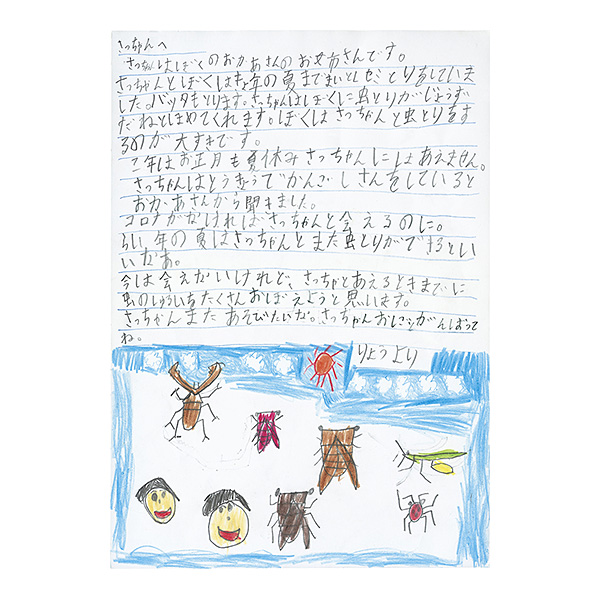 さっちゃんへ
さっちゃんはぼくのおかあさんのお女市さんです。
さっちゃんとぼくは去年の夏までまいとしセミとりをしていま
した。バッタもとります。さっちゃんはぼくに虫とりがじょうず
だねとほめてくれます。ぼくはさっちゃんと虫とりをす
るのが大すきです。
二年はお正月も夏休みさっちゃんにはあえません。
さっちゃんはとうきょうでかんごしさんをしていると
おかあさんから聞きました。
コロナがなければさっちゃんと会えるのに。
らい年の夏はさっちゃんとまた虫とりができるとい
いなあ。
今は会えないけれど、さっちゃんとあえるときまでに
虫のしゅるいをたくさんおぼえようと思います。
さっちゃんまたあそびたいな。さっちゃんおしごとがんばって
ね。
りょうより